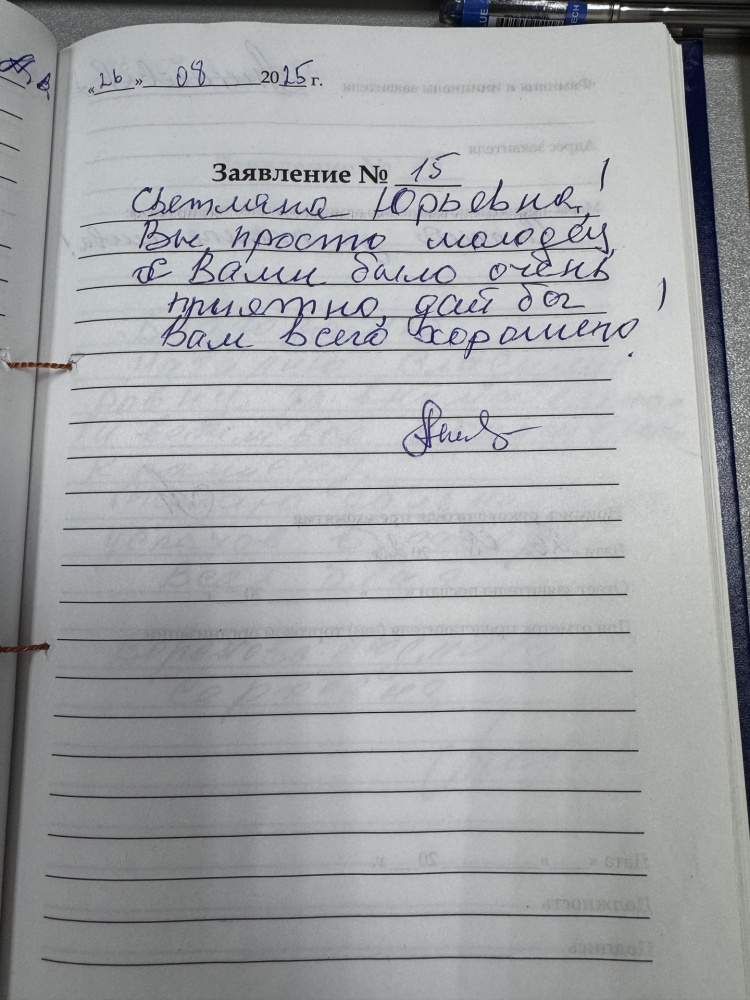 «26» 08 2025 г.
Заявление № 15
Светлана Юрьевна!
Вы просто молодец,
с Вами было очень
приятно, дай бог
вам всего хорошего!